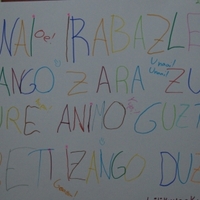 NAI Oe! IRABAZLE
ANGO ZARA ZU
URE ANIMO GUZT
ETI IZANGO DUZ